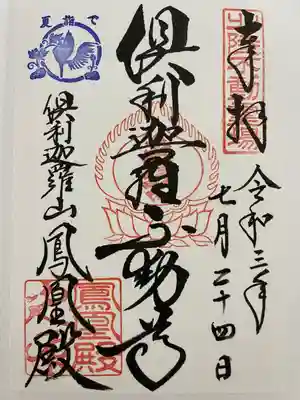 北陸不動霊場
奉拝
令和三年
七月二十四日
倶利迦羅不動尊
夏詣で
倶利迦羅山鳳凰殿
鳳凰殿